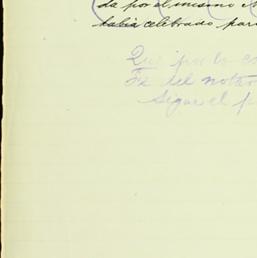 da por el mismo
habia celebrado para
Que por lo
Fé del notar
Sigue el